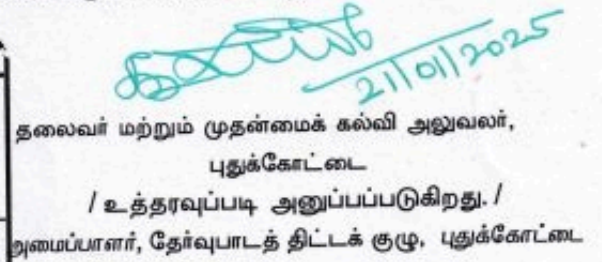 21/01/2025
தலைவர் மற்றும் முதன்மைக் கல்வி அலுவலர்,
புதுக்கோட்டை
/ உத்தரவுப்படி அனுப்பப்படுகிறது. /
அமைப்பாளர், தேர்வுபாடத் திட்டக் குழு, புதுக்கோட்டை